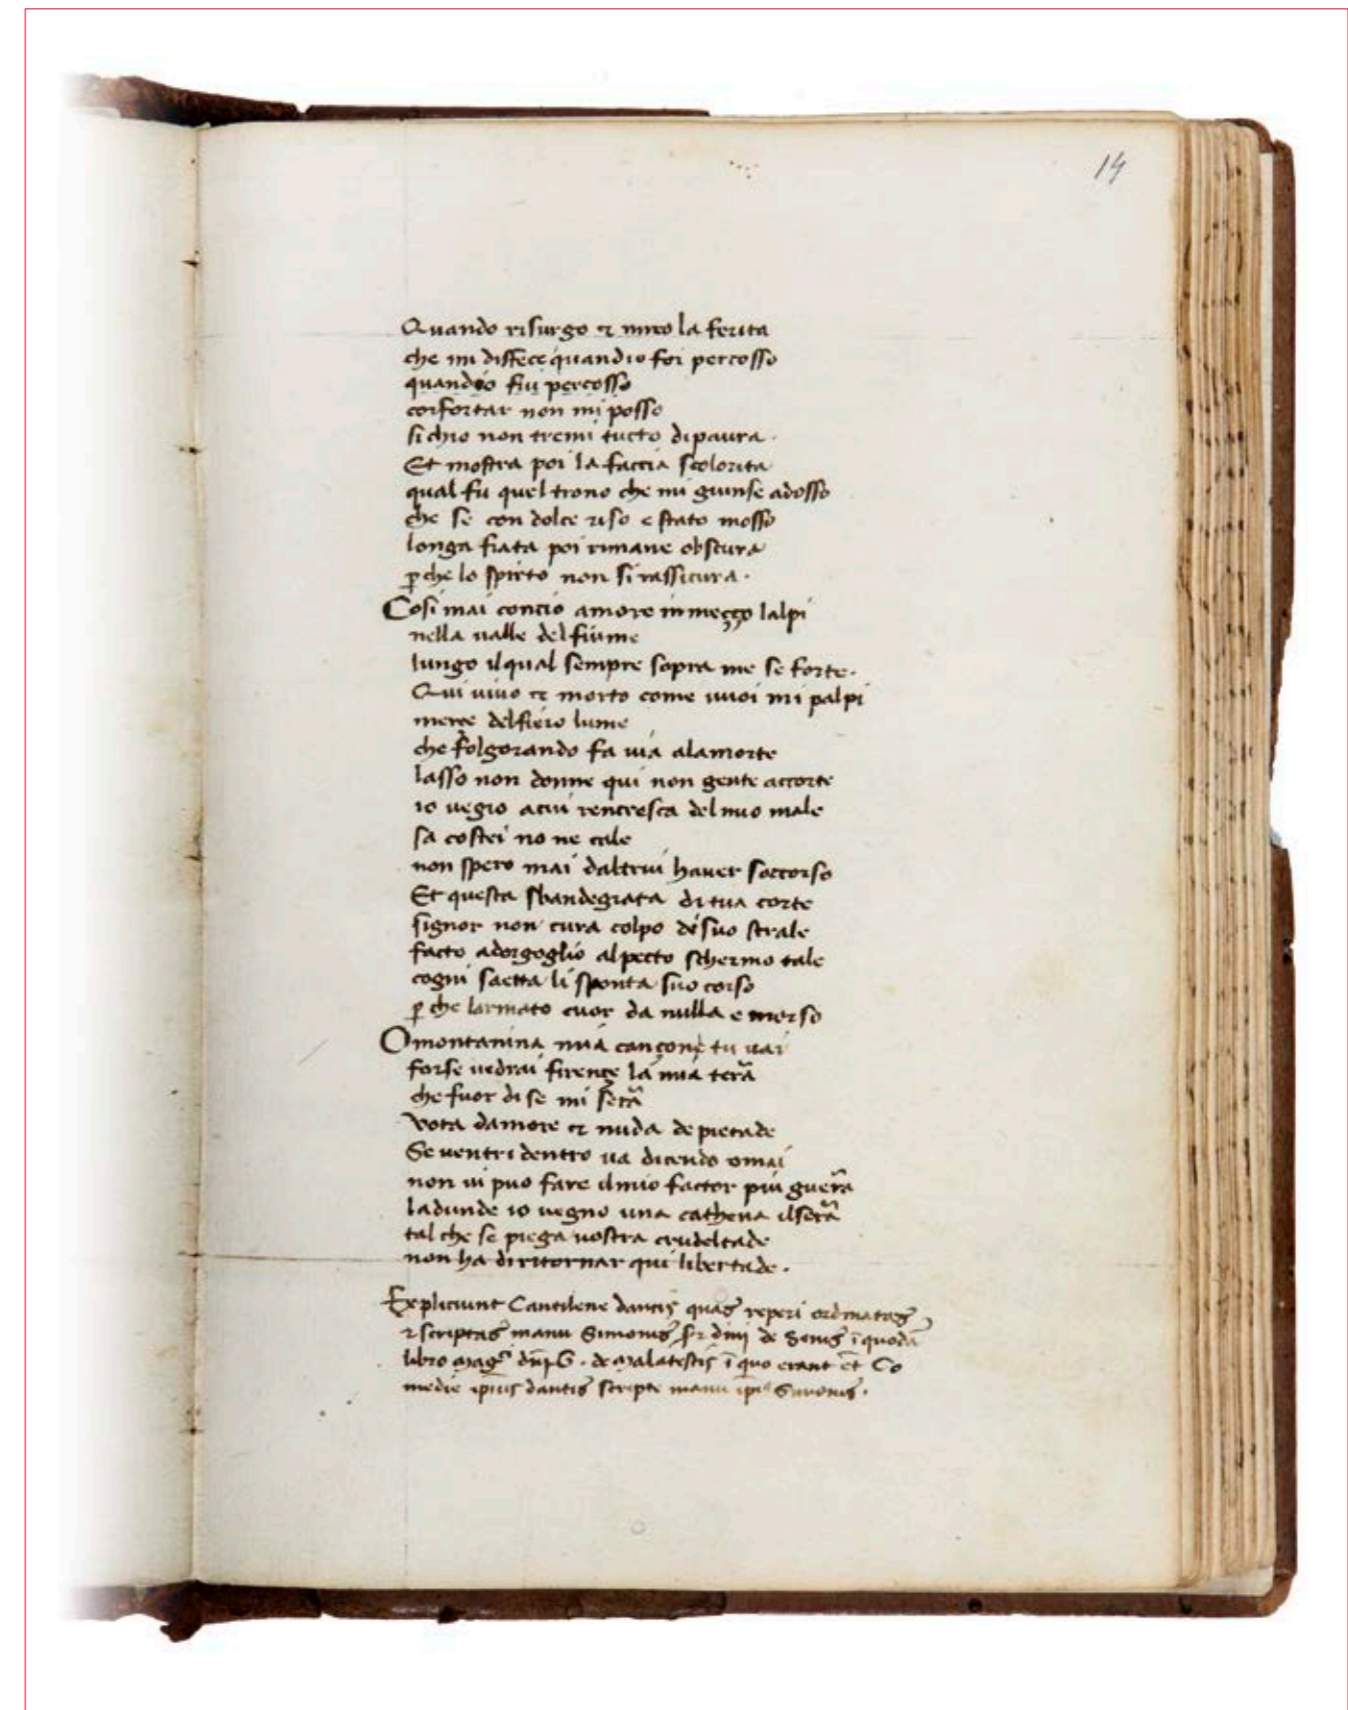 14
Quando risurgo et miro la ferita
che mi disfece quandio foi percosso
quandio fui percosso
corfortar non mi posso
sichio non tremi tucto dipaura.
Et mostra poi la faccia scolorita
qual fu quel trono che mi giunse adosso
che se con dolce riso e stato mosso
longa fiata poi rimane obscura
p̱che lo spirto non si rassicura.
Cosi mai concio amore inmeçço lalpi
nella ualle del fiume
lungo ilqual sempre sopra me se forte.
Qui uiuo et morto come uuoi mi palpi
merçe delfiero lume
che folgorando fa uia alamorte
lasso non donne qui non gente accorte
io uegio acui rencresca del mio male
sa costei no ne cale
non spero mai daltrui hauer soccorso
Et questa sbandegiata di tua corte
signor non cura colpo de suo strale
facto adorgoglio alpecto schermo tale
cogni saetta li sponta suo corso
p̱che larmato cuor da nulla e morso
Omontanina mia cançone tu uai
forse uedrai firençe la mia tera
che fuor di se mi sera
Vota damore et nuda de pietade
Se uentri dentro ua dicendo omai
non ui puo fare ilmio factor piu guera
ladunde io uegno una cathena ilsera
tal che se piega uostra crudeltade
non ha diritornar qui libertade.
Expliciunt Cantilene dantis quas reperi ordinatas,
et scriptas manu Simonis de Senis ī quodā
libro de Malatestis ī quo erant et̄ Co
medie ipius dantis scripte manu ip̄i Simonis.